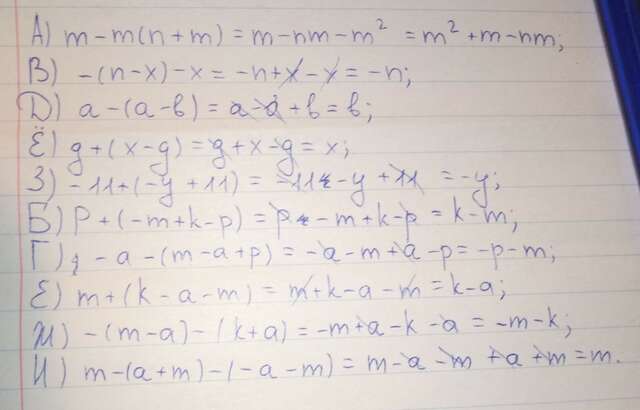 А) m - m(n + m) = m - nm - m² = m² + m - nm;
В) -(n - x) - x = -n + x - x = -n;
Д) a - (a - b) = a - a + b = b;
Ё) g + (x - g) = g + x - g = x;
З) - 11 + (-y + 11) = -11 - y + 11 = -y;
Б) p + (-m + k - p) = p - m + k - p = k - m;
Г) - a - (m - a + p) = -a - m + a - p = -p - m;
Е) m + (k - a - m) = m + k - a - m = k - a;
Ж) -(m - a) - (k + a) = -m + a - k - a = -m - k;
И) m - (a + m) - (-a - m) = m - a - m + a + m = m.